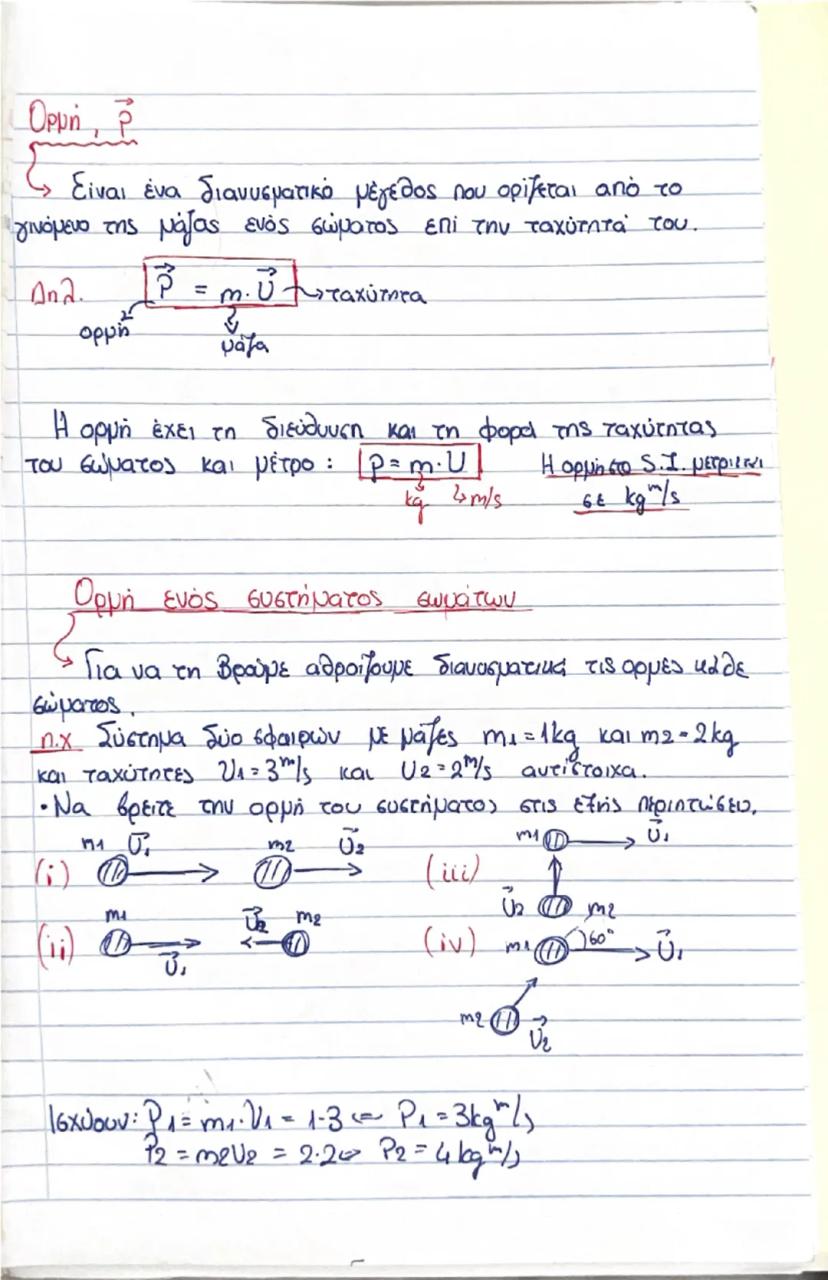 Ορμή, P⃗
Είναι ένα διανυσματικό μέγεθος που ορίζεται από το
γινόμενο της μάζας ενός σώματος επί την ταχύτητά του.
Δηλ. P⃗ = m·U⃗ ταχύτητα
ορμή μάζα
Η ορμή έχει τη διεύθυνση και τη φορά της ταχύτητας
του σώματος και μέτρο: p = m·U Η ορμή στο S.I. μετριέται
kg m/s σε kg m/s
Ορμή ενός συστήματος σωμάτων
Για να τη βρούμε αθροίζουμε διανυσματικά τις ορμές κάθε
σώματος.
π.χ Σύστημα δύο σφαιρών με μάζες m1=1kg και m2=2kg
και ταχύτητες U1=3m/s και U2=2m/s αντίστοιχα.
• Να βρείτε την ορμή του συστήματος στις εξής περιπτώσεις.
(i) m1 U⃗1 m2 U⃗2
(iii) m1 U⃗1
U⃗2 m2
(ii) m1 U⃗1 U⃗2 m2
(iv) m1 60° U⃗1
m2 U⃗2
Ισχύουν: P1=m1·U1=1·3 ⇔ P1=3kg m/s
P2=m2U2=2·2 ⇔ P2=4kg m/s